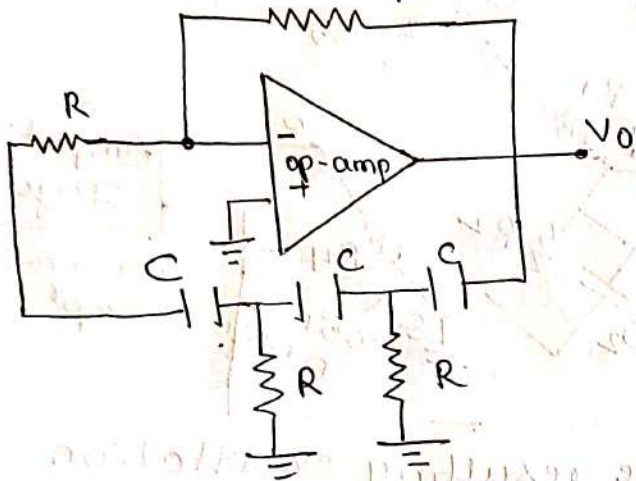 R
-
op-amp
+
Vo
C
C
C
R
R